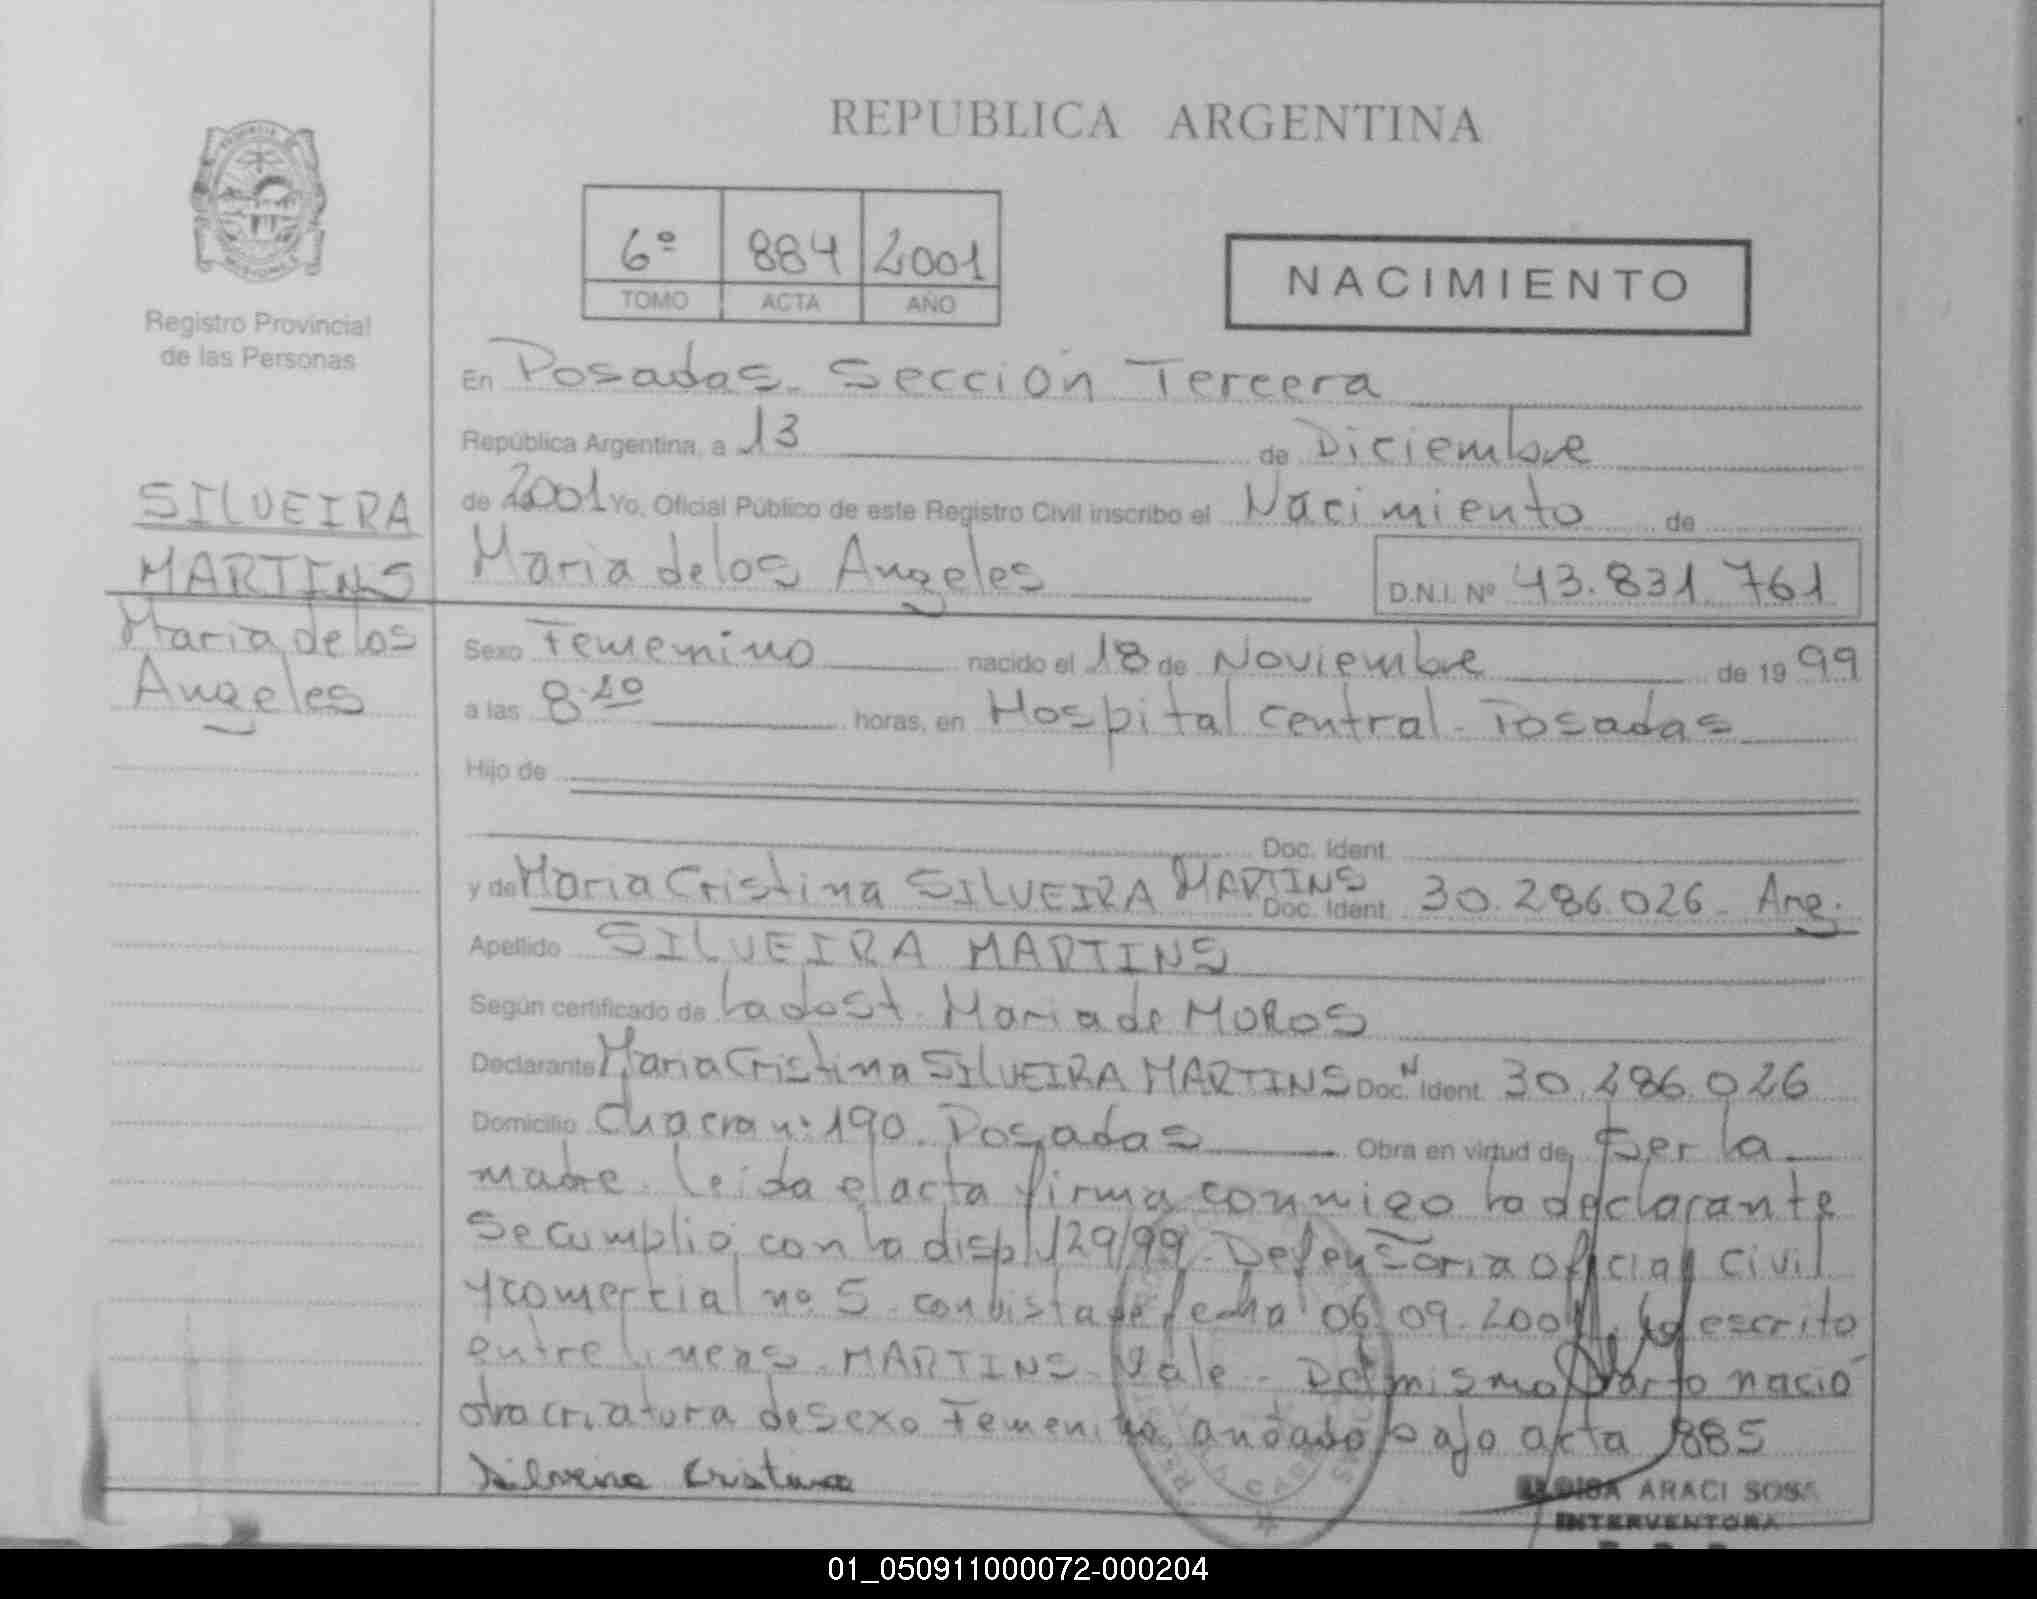 REPUBLICA ARGENTINA
6º 884 2001
TOMO ACTA AÑO
NACIMIENTO
Registro Provincial
de las Personas
SILVEIRA
MARTINS
Maria de los
Angeles
En Posadas. Sección Tercera
República Argentina, a 13 de Diciembre
de 2001 Yo, Oficial Público de este Registro Civil inscribo el Nacimiento de
Maria de los Angeles D.N.I. Nº 43.831.761
Sexo Femenino nacido el 18 de Noviembre de 19 99
a las 8.20 horas, en Hospital Central. Posadas
Hijo de
Doc. Ident.
y de Maria Cristina SILVEIRA MARTINS Doc. Ident. 30.286.026 - Arg.
Apellido SILVEIRA MARTINS
Según certificado de la dost. Maria de MOROS
Declarante Maria Cristina SILVEIRA MARTINS Doc. Ident. 30.286.026
Domicilio Chacra nº 190. Posadas Obra en virtud de Ser la
madre. leida el acta firma conmigo la declarante
Se cumplio con la disp 129/99. Defensoria oficial Civil
y comercial nº 5. con vista de fecha 06.09.2001. lo escrito
entre lineas. MARTINS. Vale - Del mismo parto nació
otra criatura de sexo Femenino anotado bajo acta 885
Silveira Cristina
ARACI SOSA
INTERVENTORA
01_050911000072-000204